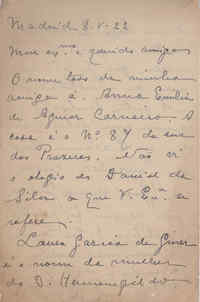 Madrid 8-V-22
Meu ex.mo e querido amigo
O nome todo da minha
amiga é: Anna Emilia
de Aguiar Carneiro. A
casa é o Nº 87 da rua
dos Prazeres. Não vi
o elogio do Daniel da
Silva a que V. Ex.a se
refere.
Laura Garcia de
é o nome da mulher
do D. Hermenegildo